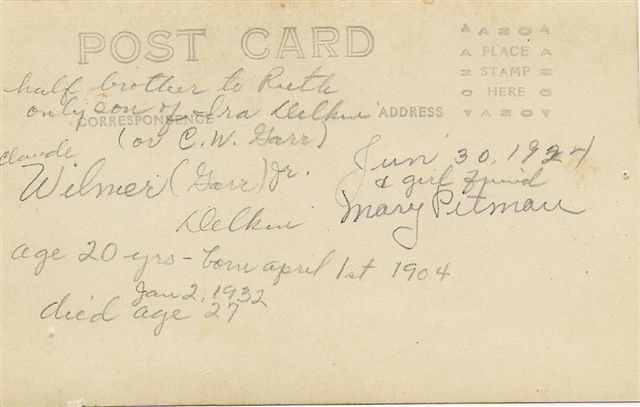 POST CARD
AZO
PLACE
STAMP
HERE
AZO
CORRESPONDENCE
ADDRESS
half brother to Ruth
only son of Ira Delkin
(or C.W. Garr)
Claude
Wilmer (Garr) Jr.
Delkin
Jun 30, 1924
& girl friend
Mary Pitman
age 20 yrs - born april 1st 1904
Jan 2, 1932
died age 27